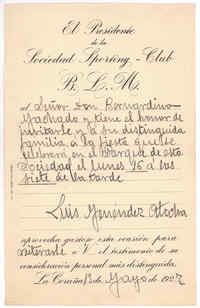 El Presidente
de la
Sociedad Sporting-Club
B. L. M.
al Señor Don Bernardino
Machado y tiene el honor de
invitarle y a su distinguida
familia, a la fiesta que se
celebrará en el Parque de esta
Sociedad el lunes 16 a las
siete de la tarde
Luis Menéndez
aprovecha gustoso esta ocasión para
V. el testimonio de su
consideración personal más distinguida.
La Coruña de Mayo de 1927